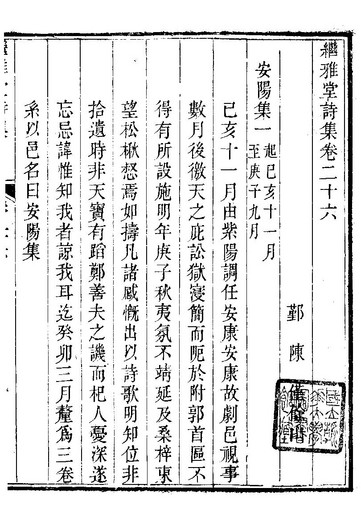 繼雅堂詩集卷二十六
鄞陳
安陽集一 起己亥十一月至庚子九月
己亥十一月由紫陽調任安康安康故劇邑視事
數月後徼天之庇訟獄寖簡而阨於附郭首區不
得有所設施明年庚子秋夷氛不靖延及桑梓東
望松楸惄焉如擣凡諸感慨出以詩歌明知位非
拾遺時非天寶有蹈鄭善夫之譏而杞人憂深遂
忘忌諱惟知我者諒我耳迄癸卯三月釐爲三卷
系以邑名曰安陽集